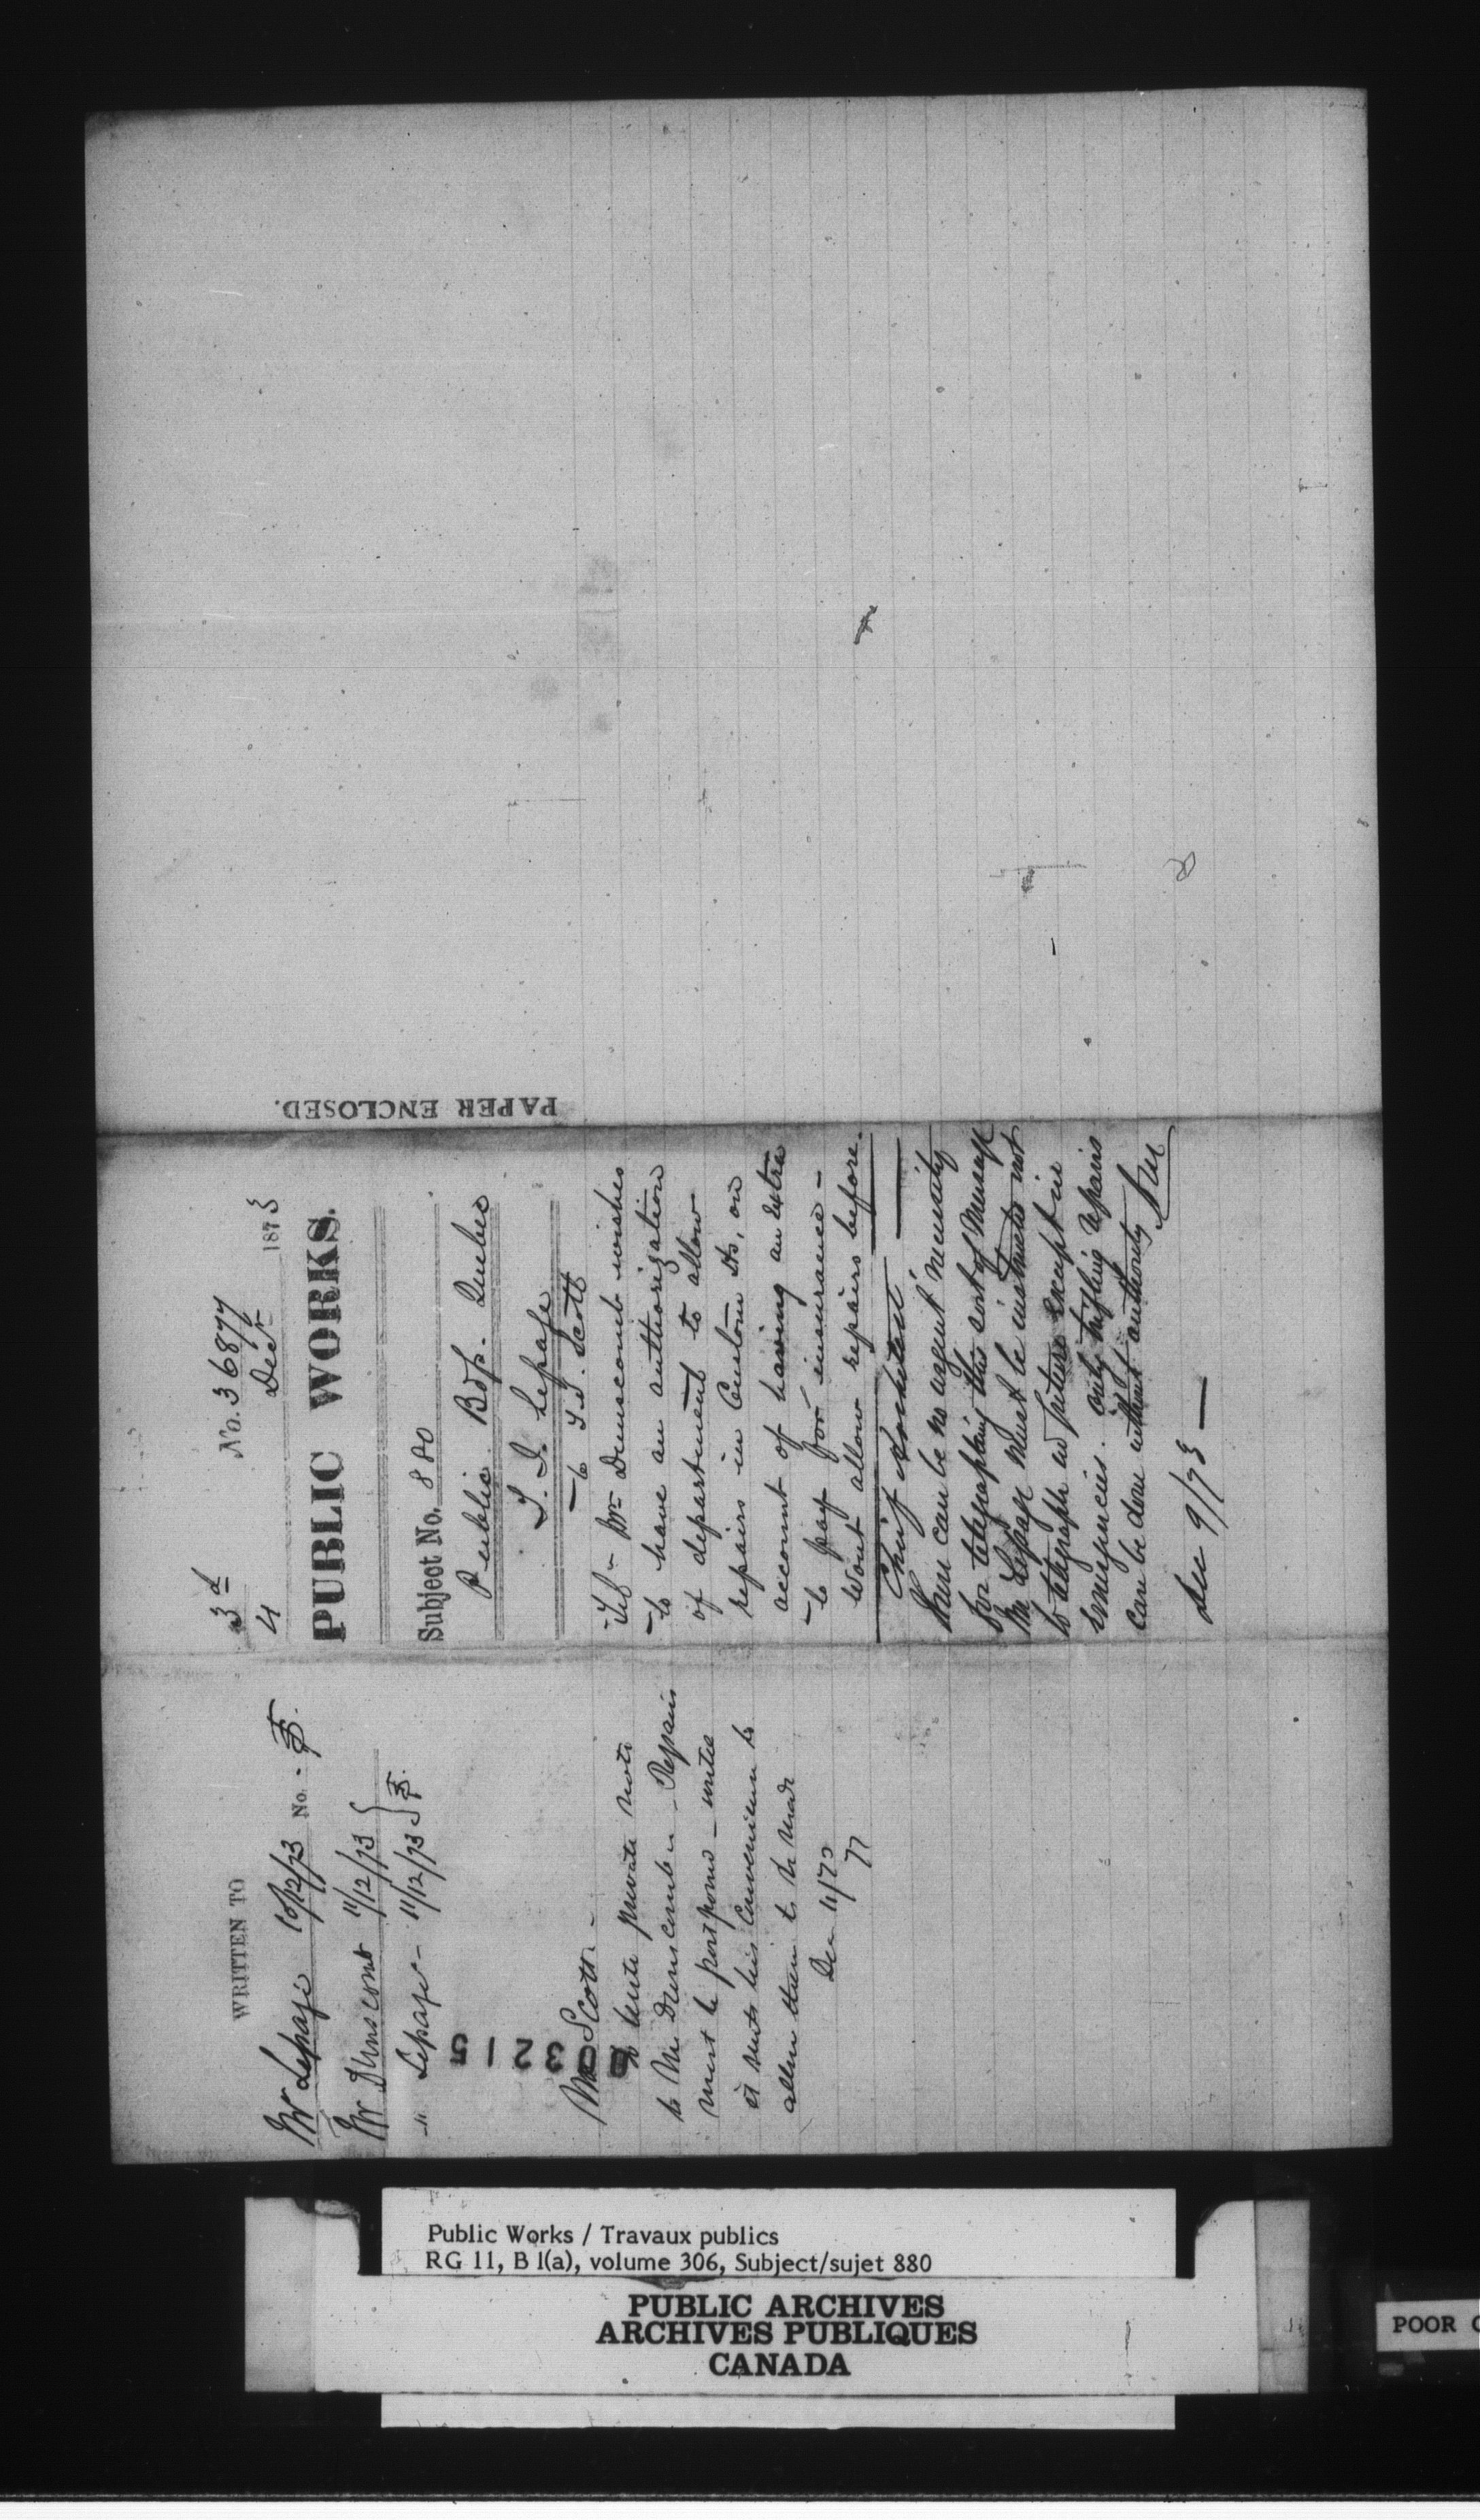 WRITTEN TO
Mr Lepage 10/12/73 No.
Mr Dunscomb 11/12/73
" Lepage 11/12/73
03215
Mr Scott
To write private note
to Mr Dunscomb Repairs
must be postponed until
it suits his convenience to
allow them to be made
Dec 11/73
3d No. 36877
4 Decr 1873
PUBLIC WORKS.
Subject No. 880
Public Bdgs. Quebec
T. I. Lepage
to T. S. Scott
Tel - Mr Dunscomb wishes
to have an authorization
of department to allow
repairs in Custom Hs, on
account of having an extra
to pay for insurance -
Wont allow repairs before.
Chief Architect
There can be no urgent necessity
for telegraphing this sort of Message
Mr Lepage must be instructed not
to telegraph in future except in
emergencies. Only trifling repairs
can be done without authority
Dec 9/73
PAPER ENCLOSED.
Public Works / Travaux publics
RG 11, B 1(a), volume 306, Subject/sujet 880
PUBLIC ARCHIVES
ARCHIVES PUBLIQUES
CANADA
POOR